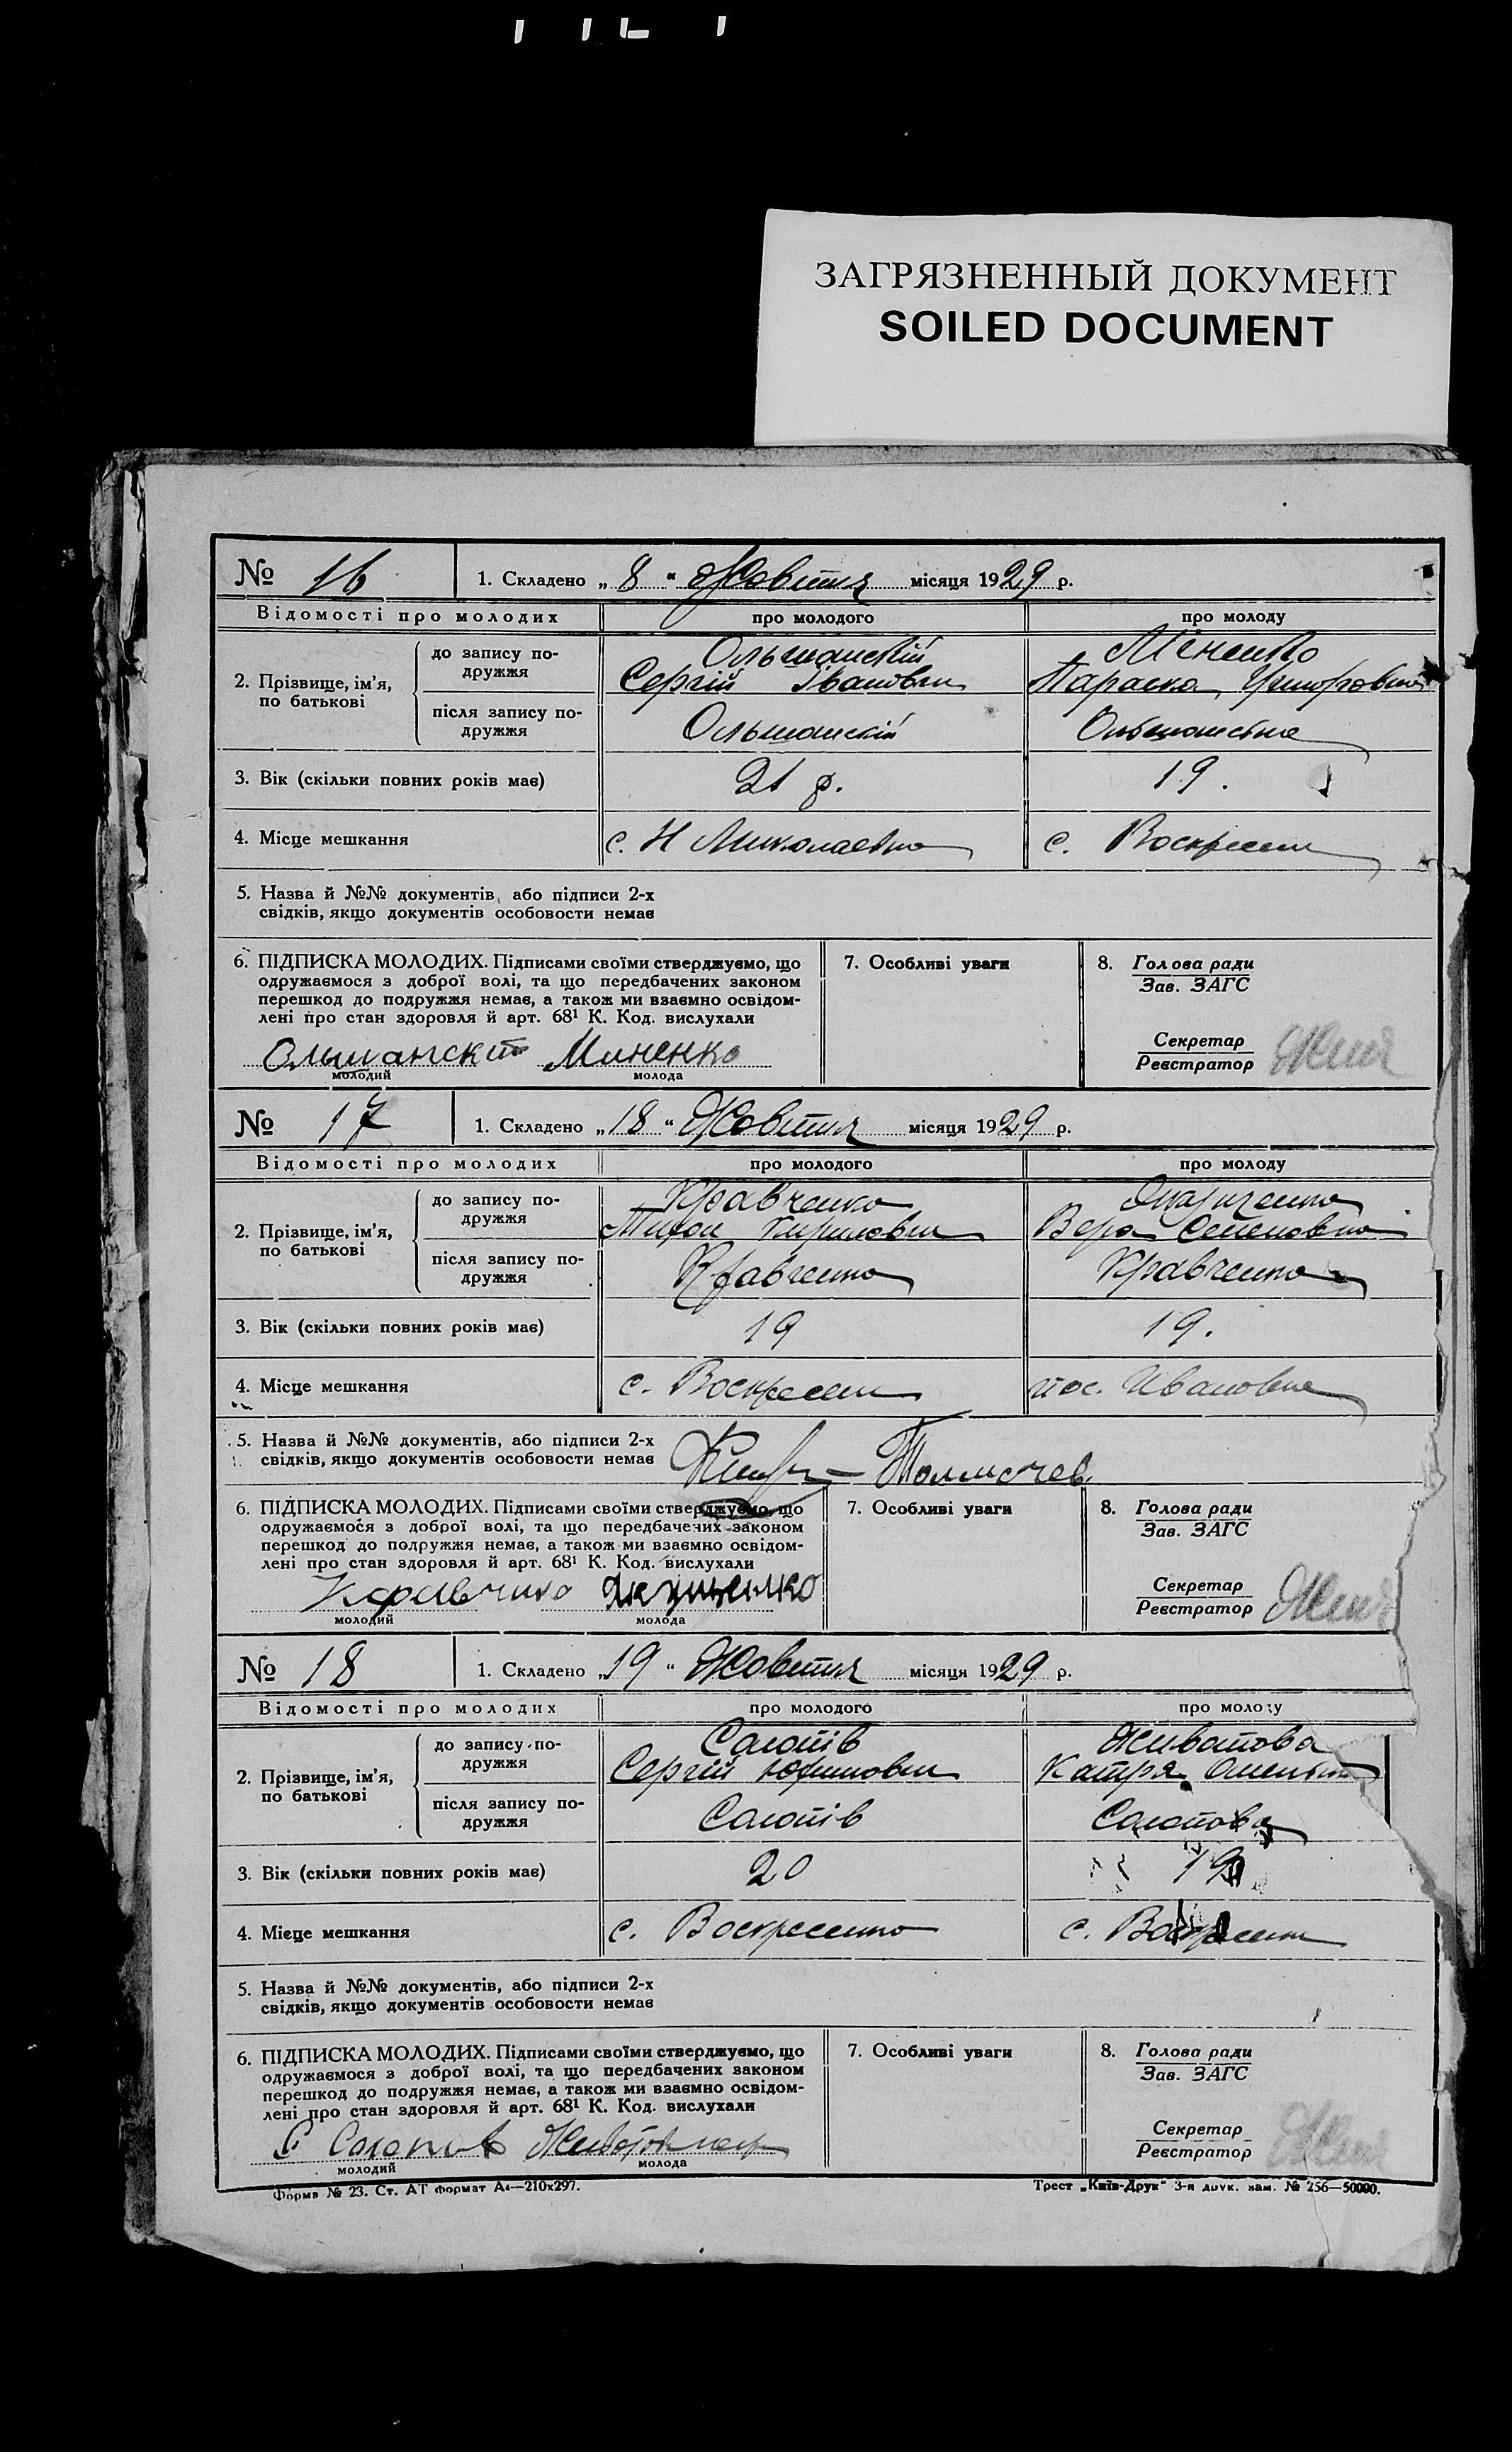 ЗАГРЯЗНЕННЫЙ ДОКУМЕНТ
SOILED DOCUMENT
№ 16
1. Складено „ 8 “ Жовтня місяця 1929 р.
Відомості про молодих
про молодого
про молоду
2. Прізвище, ім’я, по батькові
до запису по-
дружжя
Ольшанскій
Сергій Івановіч
Міненко
Параска
після запису по-
дружжя
Ольшанскій
Ольшанська
3. Вік (скільки повних років має)
21 р.
19.
4. Місце мешкання
с. Н Миколаевка
с. Воскресен
5. Назва й №№ документів, або підписи 2-х
свідків, якщо документів особовости немає
6. ПІДПИСКА МОЛОДИХ. Підписами своїми стверджуємо, що
одружаємося з доброї волі, та що передбачених законом
перешкод до подружжя немає, а також ми взаємно освідом-
лені про стан здоровля й арт. 68¹ К. Код. вислухали
Миненко
молодий
молода
7. Особливі уваги
8. Голова ради
Зав. ЗАГС
Секретар
Реєстратор
№ 17
1. Складено „ 18 “ Жовтня місяця 1929 р.
Відомості про молодих
про молодого
про молоду
2. Прізвище, ім’я,
по батькові
до запису по-
дружжя
Кравченко
Кирилович
Вера Семеновна
після запису по-
дружжя
Кравченко
Кравченко
3. Вік (скільки повних років має)
19
19.
4. Місце мешкання
с. Воскресен
пос. Ивановка
5. Назва й №№ документів, або підписи 2-х
свідків, якщо документів особовости немає
Толмачев
6. ПІДПИСКА МОЛОДИХ. Підписами своїми стверджуємо, що
одружаємося з доброї волі, та що передбачених законом
перешкод до подружжя немає, а також ми взаємно освідом-
лені про стан здоровля й арт. 68¹ К. Код. вислухали
молодий
молода
7. Особливі уваги
8. Голова ради
Зав. ЗАГС
Секретар
Реєстратор
№ 18
1. Складено „ 19 “ Жовтня місяця 1929 р.
Відомості про молодих
про молодого
про молоду
2. Прізвище, ім’я,
по батькові
до запису по-
дружжя
Сергій Юхимович
Животова
Катря
після запису по-
дружжя
3. Вік (скільки повних років має)
20
19
4. Місце мешкання
с. Воскресенка
с. Воскресен
5. Назва й №№ документів, або підписи 2-х
свідків, якщо документів особовости немає
6. ПІДПИСКА МОЛОДИХ. Підписами своїми стверджуємо, що
одружаємося з доброї волі, та що передбачених законом
перешкод до подружжя немає, а також ми взаємно освідом-
лені про стан здоровля й арт. 68¹ К. Код. вислухали
молодий
молода
7. Особливі уваги
8. Голова ради
Зав. ЗАГС
Секретар
Реєстратор
Форма № 23. Ст. АТ формат А₄—210x297.
Трест „Київ-Друк“ 3-я друк. зам. № 256—50000.